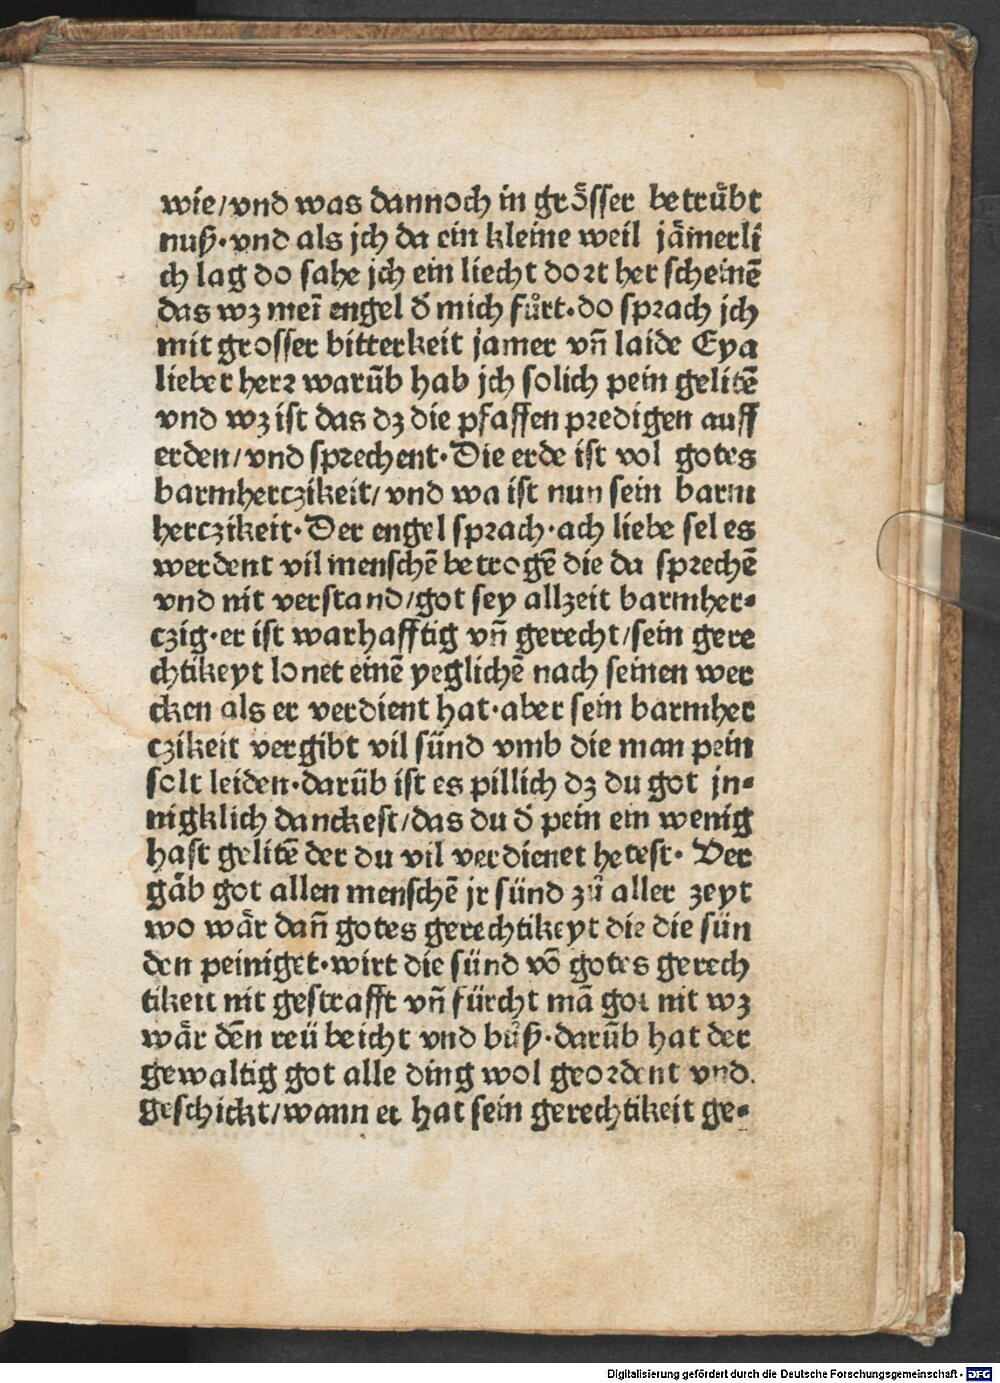 wie/vnd was dannoch in grösser betrůbt
nuß·vnd als jch da ein kleine weil jämerli
ch lag do sahe jch ein liecht dort her scheinē
das wꝫ meī engel đ mich fůrt·do sprach jch
mit grosser bitterkeit jamer vn̄ laide Eya
lieber herꝛ warūb hab jch solich pein gelitē
vnd wꝫ ist das dꝫ die pfaffen predigen auff
erden/vnd sprechent·Die erde ist vol gotes
barmherczikeit/vnd wa ist nun sein barm
herczikeit·Der engel sprach·ach liebe sel es
werdent vil menschē betrogē die da sprechē
vnd nit verstand/got sey allzeit barmher-
czig·er ist warhafftig vn̄ gerecht/sein gere
chtikeyt lonet einē yeglichē nach seinen wer
cken als er verdient hat·aber sein barmher
czikeit vergibt vil sünd vmb die man pein
solt leiden·darūb ist es pillich dꝫ du got jn-
nigklich danckest/das du đ pein ein wenig
hast gelitē der du vil verdienet hetest· Ver
gäb got allen menschē jr sünd zů aller zeyt
wo wär dan̄ gotes gerechtikeyt die die sün
den peiniget·wirt die sünd vō gotes gerech
tikeit nit gestrafft vn̄ fürcht mā got nit wꝫ
wär dēn reü beicht vnd bůß·darūb hat der
gewaltig got alle ding wol geordent vnd.
geschickt/wann er hat sein gerechtikeit ge-
Digitalisierung gefördert durch die Deutsche Forschungsgemeinschaft - DFG